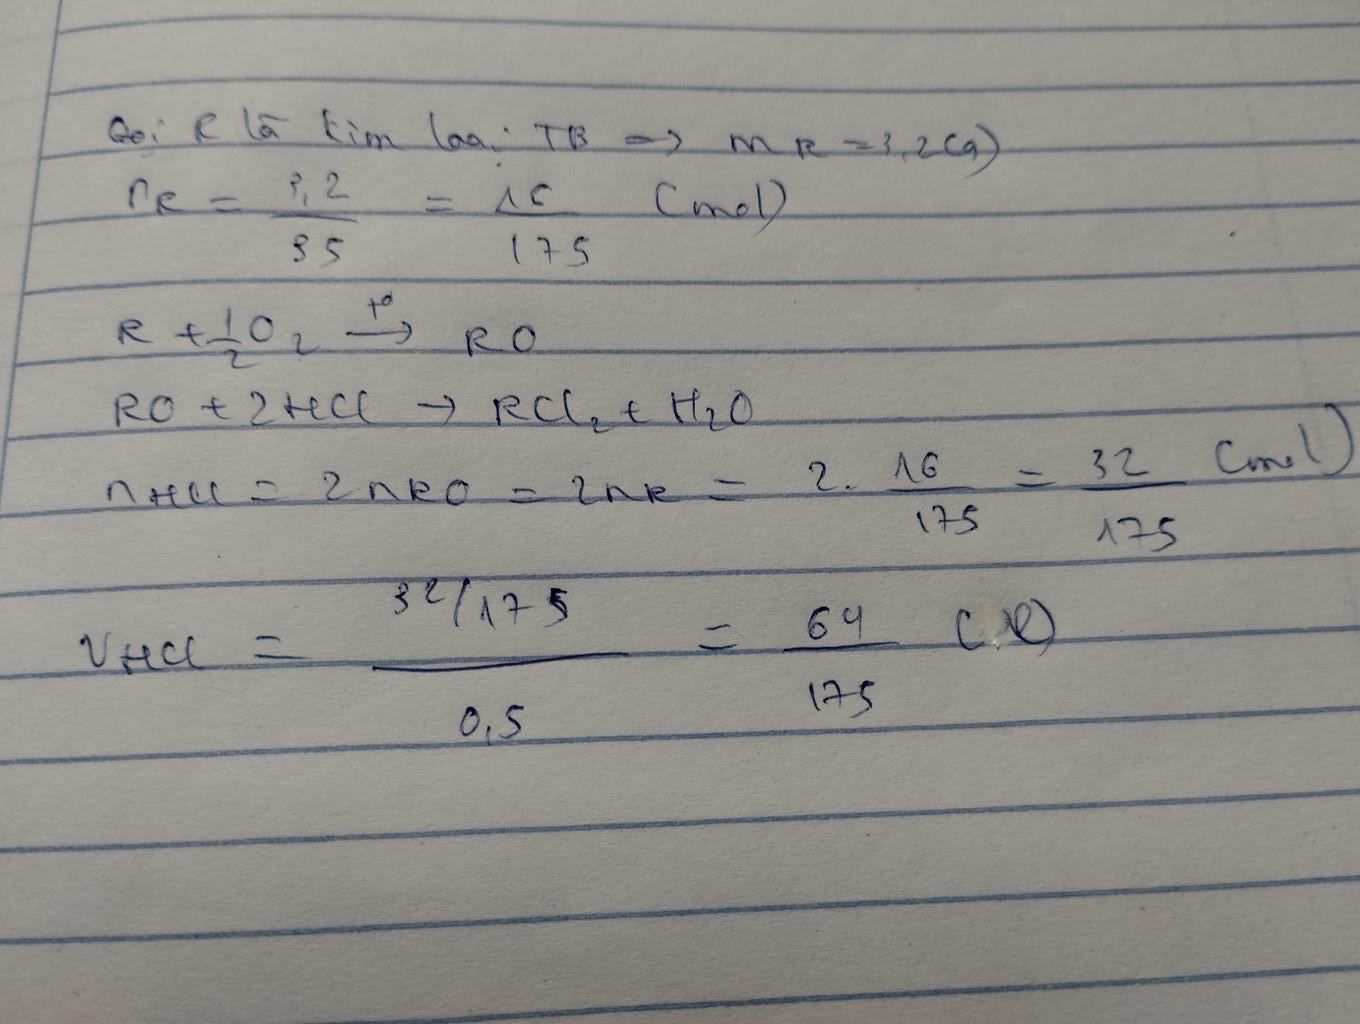 Gọi R là kim loại TB => mR = 3,2(g)
nR = 3,2/35 = 16/175 (mol)
R + 1/2 O2 t°→ RO
RO + 2HCl → RCl2 + H2O
nHCl = 2nRO = 2nR = 2. 16/175 = 32/175 (mol)
VHCl = 32/175 / 0,5 = 64/175 (l)